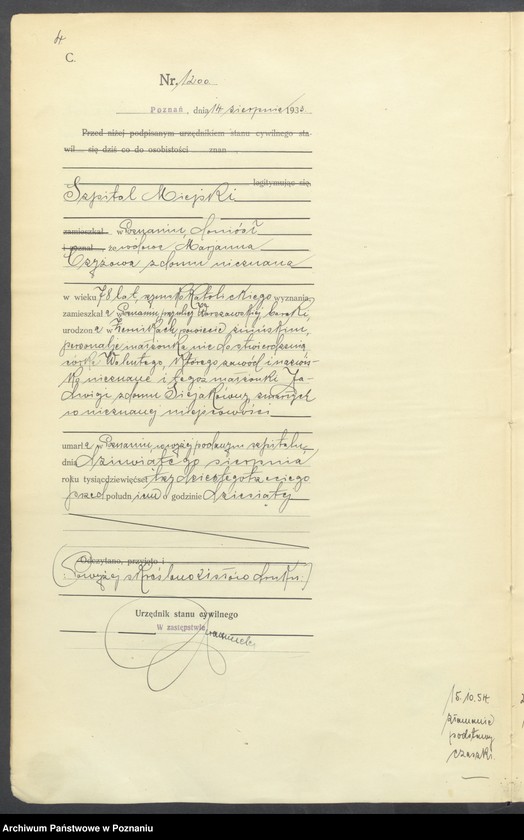 C.
Nr. 1200
Poznań, dnia 14 sierpnia 1933
Przed niżej podpisanym urzędnikiem stanu cywilnego sta-
wił się dziś co do osobistości znan
legitymując się,
Szpital Miejski
zamieszkał w Poznaniu, doniósł
i zeznał, że wdowa Marjanna
z domu nieznana
w wieku 78 lat, rzymskokatolickiego wyznania,
zamieszkała w Poznaniu przy ulicy Warszawskiej baraki,
urodzona w powiecie żnińskim,
personalje małżonka nie do stwierdzenia
córka Walentego, którego zawód i nazwis-
ko nieznane i tegoż małżonki Ja-
dwigi z domu zmarłych
w nieznanej miejscowości
umarła w Poznaniu w wyżej podanym szpitalu,
dnia dziewiątego sierpnia
roku tysiącdziewięćset trzydziestego trzeciego
przed południem o godzinie dziesiątej
Odczytano, przyjęto i
(Powyżej skreślono słów druku.)
Urzędnik stanu cywilnego
W zastępstwie
15.10.54
złamanie
podstawy
czaszki.
Archiwum Państwowe w Poznaniu